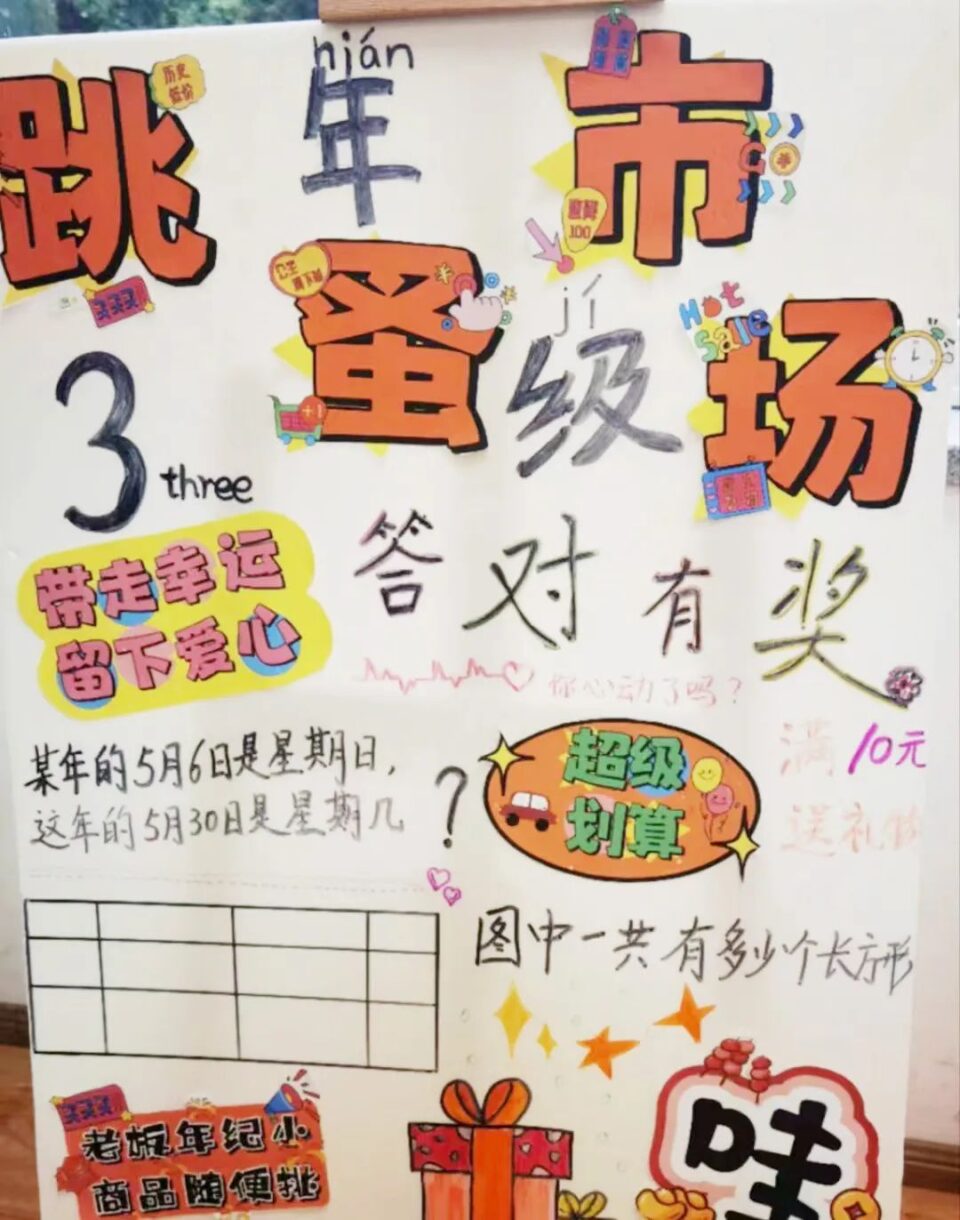 nián
跳 年 市
历史低价
蚤 级 场
jí
GO
100
Hot Sale
+1
3 three
答对有奖
带走幸运
留下爱心
你心动了吗？
某年的5月6日是星期日，
这年的5月30日是星期几？
超级
划算
满10元
送礼物
图中一共有多少个长方形
老板年纪小
商品随便挑
哇